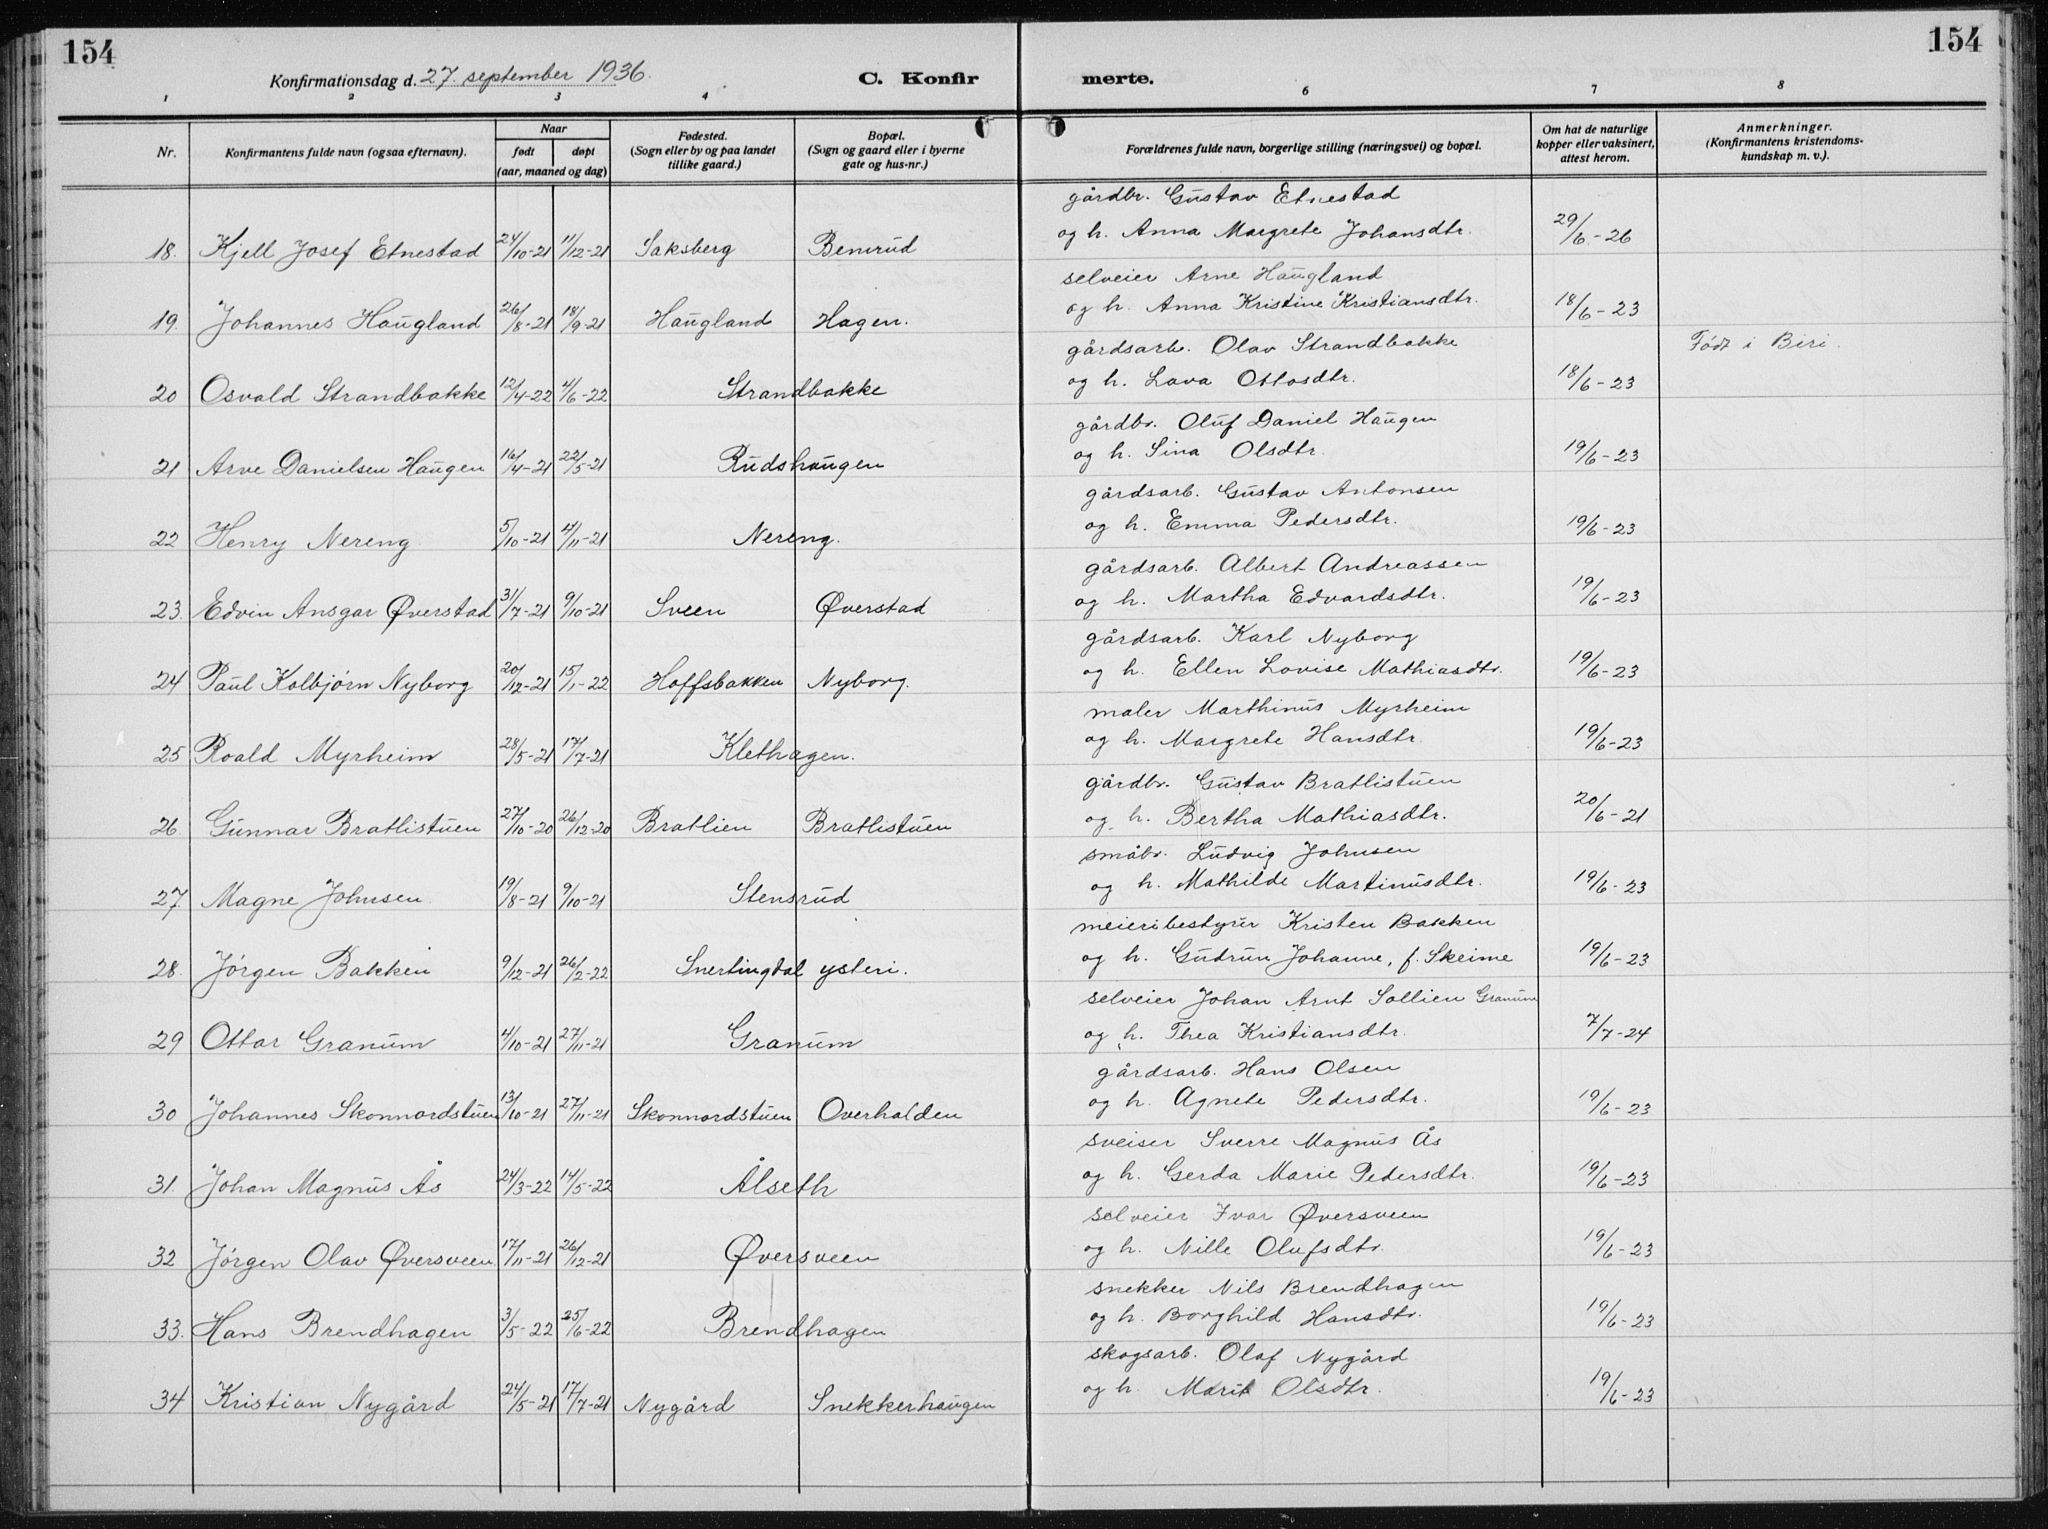 154
154
Konfirmationsdag d. 27. september 1936.
C. Konfir
merte.
1 2 3 4 6 7 8
Nr.
Konfirmantens fulde navn (ogsaa efternavn).
Naar
født
døpt
(aar, maaned og dag)
Fødested.
(Sogn eller by og paa landet
tillike gaard.)
Bopæl.
(Sogn og gaard eller i byerne
gate og hus-nr.)
Forældrenes fulde navn, borgerlige stilling (næringsvei) og bopæl.
Om hat de naturlige
kopper eller vaksinert,
attest herom.
Anmerkninger.
(Konfirmantens kristendoms-
kundskap m. v.).
gårdbr. Gustav Etnestad
18. Kjell Josef Etnestad 24/10-21 11/12-21 Saksberg Bemrud og h. Anna Margrete Johansdtr. 29/6-26
selveier Arne Haugland
19. Johannes Haugland 26/8-21 18/9-21 Haugland Hagen. og h. Anna Kristine Kristiansdtr. 18/6-23
gårdsarb. Olav Strandbakke Født i Biri.
20 Osvald Strandbakke 12/4-22 4/6-22 Strandbakke og h. Lava Ottosdtr. 18/6-23
gårdbr. Oluf Daniel Haugen
21 Arve Danielsen Haugen 16/4-21 22/5-21 Rudshaugen og h. Sina Olsdtr. 19/6-23
gårdsarb. Gustav Antonsen
22 Henry Nereng 5/10-21 4/11-21 Nereng. og h. Emma Pedersdtr. 19/6-23
gårdsarb. Albert Andreassen
23. Edvin Ansgar Øverstad 31/7-21 9/10-21 Sveen Øverstad og h. Martha Edvardsdtr. 19/6-23
gårdsarb. Karl Nyborg
24 Paul Kolbjørn Nyborg 20/12-21 15/1-22 Hoffsbakken Nyborg. og h. Ellen Lovise Mathiasdtr. 19/6-23
maler Marthinus Myrheim
25 Roald Myrheim 28/5-21 17/7-21 Klethagen. og h. Margrete Hansdtr. 19/6-23
gårdbr. Gustav Bratlistuen
26. Gunnar Bratlistuen 27/10-20 26/12-20 Bratlien Bratlistuen og h. Bertha Mathiasdtr. 20/6-21
småbr. Ludvig Johnsen
27. Magne Johnsen. 19/8-21 9/10-21 Stensrud og h. Mathilde Martinusdtr. 19/6-23
meieribestyrer Kristen Bakken
28. Jørgen Bakken 9/12-21 26/2-22 Snertingdal ysteri. og h. Gudrun Johanne, f. Skeime 19/6-23
selveier Johan Arnt Sollien Granum
29 Ottar Granum 4/10-21 27/11-21 Granum og h. Thea Kristiansdtr. 7/7-24
gårdsarb. Hans Olsen
30 Johannes Skonnordstuen 13/10-21 27/11-21 Skonnordstuen Overhalden og h. Agnete Pedersdtr. 19/6-23
sveiser Sverre Magnus Ås
31. Johan Magnus Ås 24/3-22 14/5-22 Ålseth og h. Gerda Marie Pedersdtr. 19/6-23
selveier Ivar Øversveen
32 Jørgen Olav Øversveen 17/11-21 26/12-21 Øversveen og h. Nille Olufsdtr. 19/6-23
snekker Nils Brendhagen
33. Hans Brendhagen 3/5-22 25/6-22 Brendhagen og h. Borghild Hansdtr. 19/6-23
skogsarb. Olaf Nygård
34 Kristian Nygård 24/5-21 17/7-21 Nygård Snekkerhaugen og h. Marit Olsdtr. 19/6-23